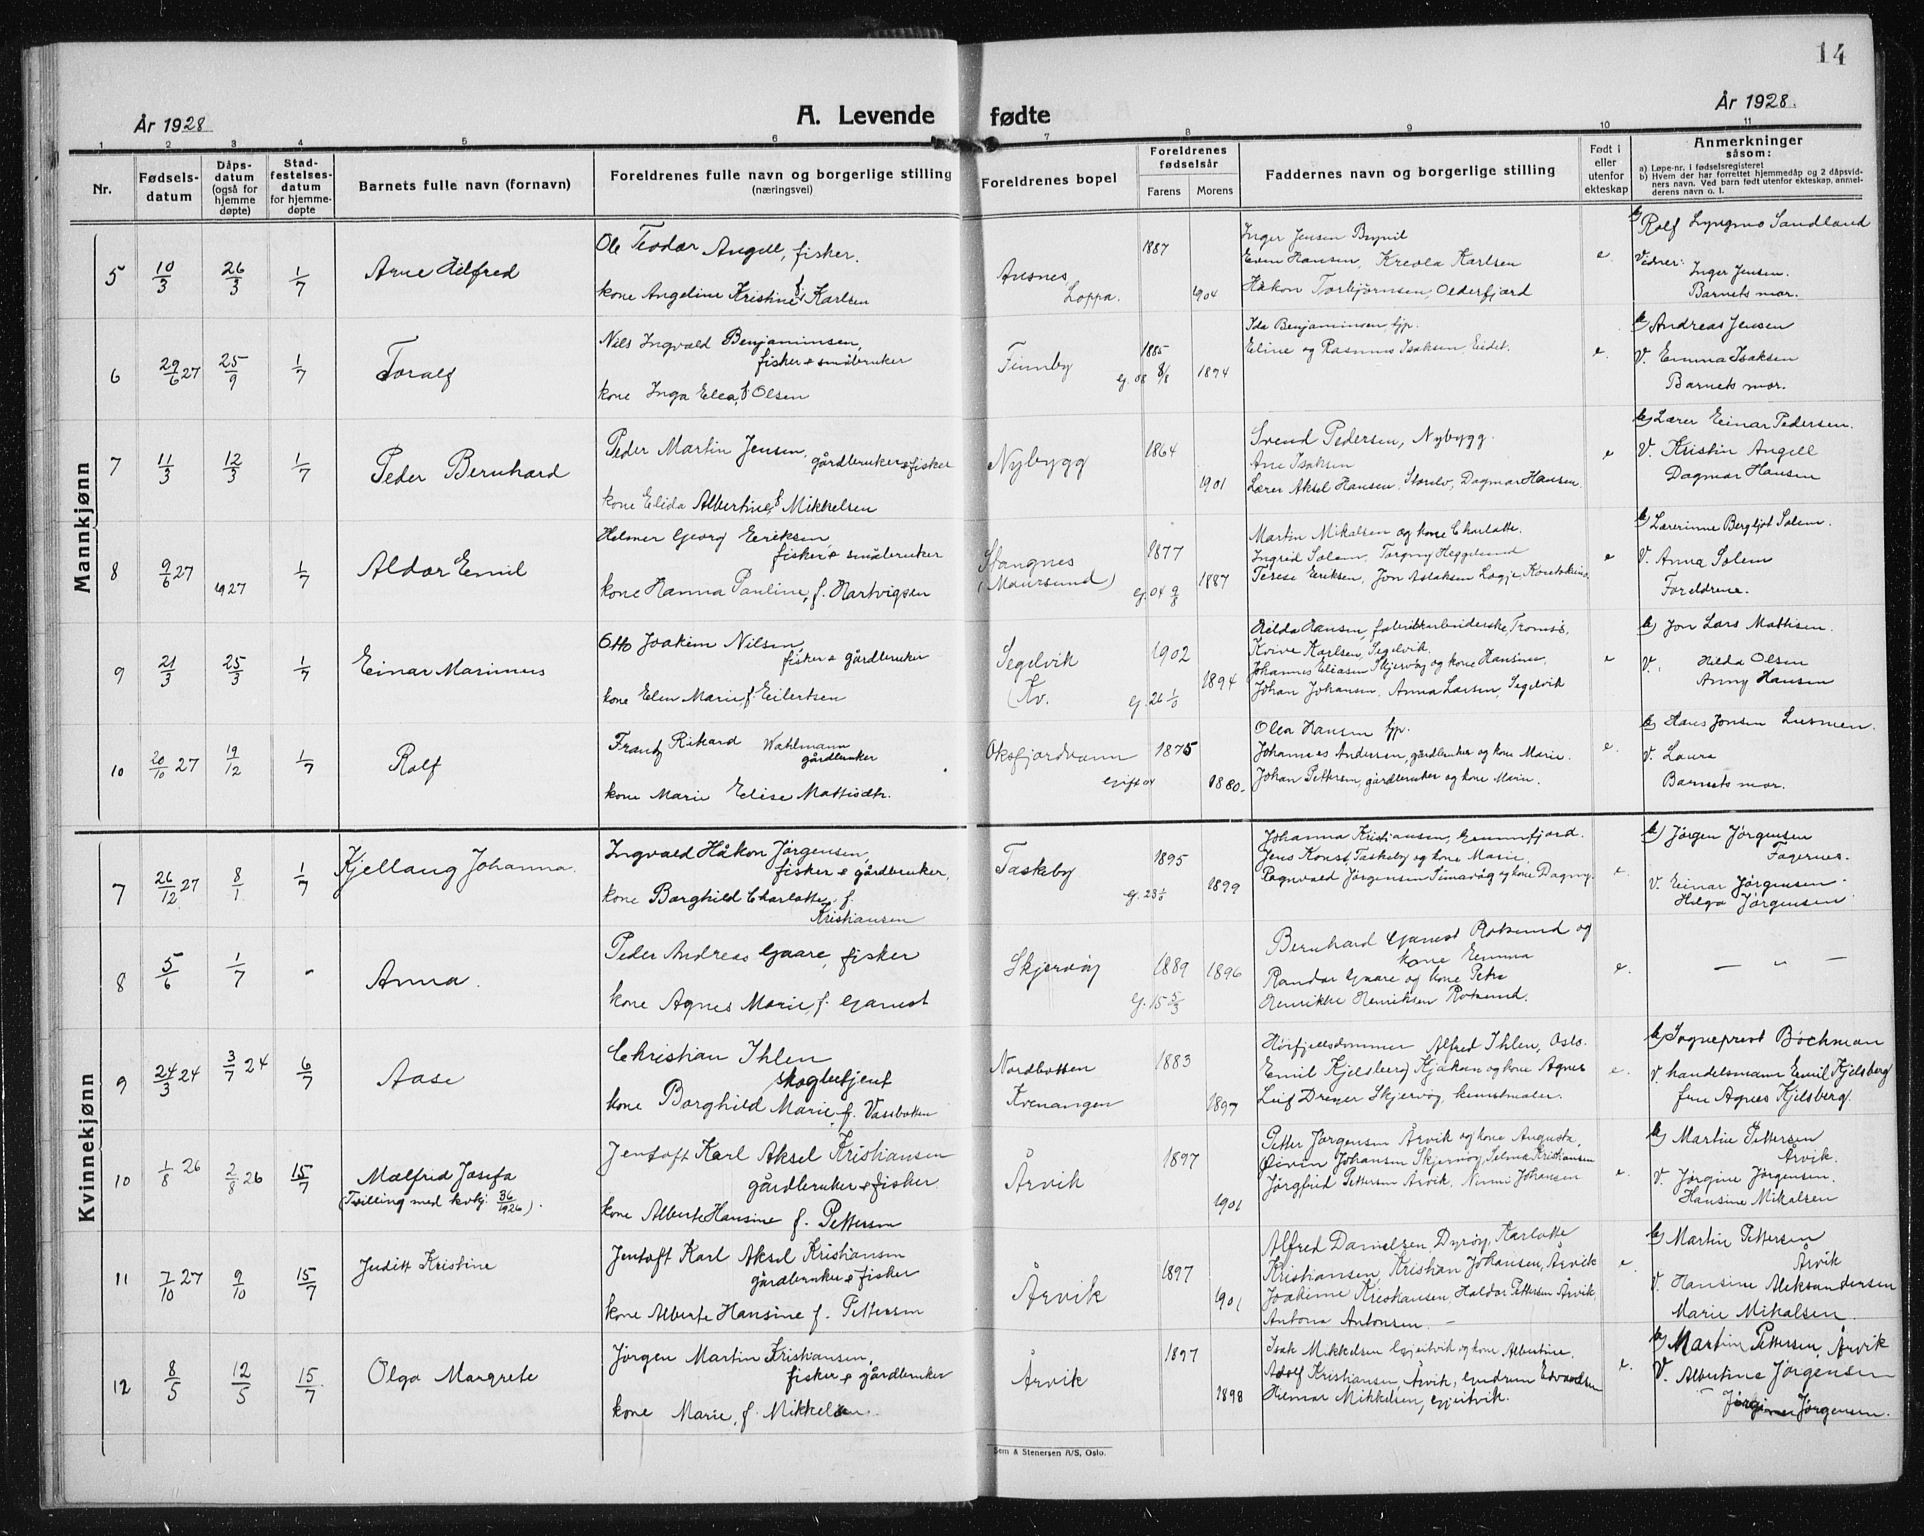 14
År 1928
A. Levende fødte
År 1928.
1 2 3 4 5 6 7 8 9 10 11
Nr.
Fødsels-
datum
Dåps-
datum
(også for
hjemme
døpte)
Stad-
festelses-
datum
for hjemme-
døpte
Barnets fulle navn (fornavn)
Foreldrenes fulle navn og borgerlige stilling
(næringsvei)
Foreldrenes bopel
Foreldrenes
fødselsår
Farens Morens
Faddernes navn og borgerlige stilling
Født i
eller
utenfor
ekteskap
Anmerkninger
såsom:
a) Løpe-nr. i fødselsregisteret
b) Hvem der har forrettet hjemmedåp og 2 dåpsvid-
ners navn. Ved barn født utenfor ekteskap, anmel-
derens navn o. l.
Mannkjønn
5 10/3 26/3 1/7 Arne Hilfred
Ole Teodor Angell, fisker.
kone Angeline Kristine f. Karlsen
Ansnes
Loppa.
1887
1904
Inger Jensen Brynil
Even Hansen, Kreola Karlsen
Håkon Torbjørnsen, Olderfjord
e.
b) Rolf Lyngmo Sandland
Vidner: Inger Jensen.
Barnets mor.
6 29/6 27 25/9 1/7 Toralf
Nils Ingvald Benjaminsen,
fisker & småbruker
kone Inga Elea, f. Olsen
Finnby
g. 08 8/8
1885
1874
Ida Benjaminsen tjp.
Eline og Rasmus Isaksen Eidet.
e.
b) Andreas Jensen
V. Emma Isaksen
Barnets mor.
7 11/3 12/3 1/7 Peder Bernhard
Peder Martin Jensen,
gårdbruker & fisker
kone Elida Albertine, f. Mikkelsen
Nybygg
1864
1901
Svend Pedersen, Nybygg.
Ane Isaksen
Lærer Aksel Hansen, Storelv, Dagmar Hansen.
e
b) Lærer Einar Pedersen.
V. Kristin Angell
Dagmar Hansen
8 9/6 27 1927 1/7 Aldor Emil
Helmer Georg Eriksen,
fisker & småbruker
kone Hanna Pauline, f. Hartvigsen
Stangnes
(Maursund)
g. 04 9/8
1877
1887
Martin Mikalsen og kone Charlotte.
Ingrid Solem, Torgny Heggelund
Terese Eriksen, Jon Aslaksen Logje Kautokeino.
e
b) Lærerinne Bergljot Solem.
V. Anna Solem
Foreldrene.
9 21/3 25/3 1/7 Einar Marinus
Otto Joakim Nilsen,
fisker & gårdbruker
kone Elen Marie, f. Eilertsen
Segelvik
Kv.
1902
1894
Hilda Hansen, fabrikkarbeiderske, Tromsø.
Kvive Karlsen, Segelvik.
Johannes Eliasen Skjervøy og kone Hansine.
Johan Johansen, Anna Larsen, Segelvik
e
b) Jon Lars Mattisen.
V. Hilda Olsen
Anny Hansen
10 20/10 27 19/12 1/7 Rolf
Frantz Rikard Wahlmann
gårdbruker
kone Marie Elise Mattisdtr.
Oksfjordvann
1875
1880.
Olea Hansen tjp.
Johannes Andersen, gårdbruker og kone Marie.
Johan Pettersen, gårdbruker og kone Marie.
e.
b) Hans Jonsen
V. Laura
Barnets mor.
Kvinnekjønn
7 26/12 27 8/1 1/7 Kjellaug Johanna.
Ingvald Håkon Jørgensen,
fisker & gårdbruker,
kone Borghild Charlotte, f.
Kristiansen
Taskeby
1895
1899
Johanna Kristiansen, Grunnfjord.
Jens Konst. Taskeby og kone Marie.
Ragnvald Jørgensen Simavåg og kone Dagny.
e.
b) Jørgen Jørgensen
Fagernes.
V. Einar Jørgensen
Helga Jørgensen
8 5/6 1/7 - Anna.
Peder Andreas Gaare, fisker
kone Agnes Marie, f. Ganest
Skjervøy
g. 15 5/3
1889 1896
Bernhard Ganest Rotsund og
kone Emma
Randar Gaare og kone Petra
Henrikke Henriksen Rotsund.
e.
— " —
9 24/3 24 3/7 24 6/7 Aase
Christian Ihlen
skogbetjent
kone Borghild Marie, f. Vassbotten
Nordbotten
Kvenangen
1883
1897
Høifjeldsdommer Alfred Ihlen, Oslo.
Emil Kjelsberg Kjækan og kone Agnes
Leif Dreyer Skjervøy, kunstmaler.
e.
b) Sogneprest Bóchman
V. handelsmann Emil Kjelsberg
fru Agnes Kjelsberg.
10 1/8 26 2/8 26 15/7 Malfred Josefa
(Tvilling med kvkj. 36/1926).
Jentoft Karl Aksel Kristiansen
gårdbruker & fisker
kone Alberte Hansine f. Pettersen
Årvik
1897
1901
Petter Jørgensen Årvik og kone Augusta,
Øivin Johansen Skjervøy, Selma Kristiansen
Jørgfrid Pettersen Årvik, Ninni Johansen
e
b) Martin Pettersen
Årvik.
V. Jørgine Jørgensen.
Hansine Mikalsen
11 7/10 27 9/10 15/7 Juditt Kristine
Jentoft Karl Aksel Kristiansen
gårdbruker & fisker
kone Alberte Hansine f. Pettersen
Årvik
1897
1901
Alfred Danielsen, Dyrøy, Karlotte
Kristiansen, Kristian Johansen, Årvik
Joakime Kristiansen, Haldor Pettersen Årvik
Antona Antonsen. —
e.
b) Martin Pettersen
Årvik
V. Hansine Aleksandersen
Marie Mikalsen.
12 8/5 12/5 15/7. Olga Margrete
Jørgen Martin Kristiansen,
fisker & gårdbruker
kone Marie, f. Mikkelsen.
Årvik
1897
1898
Isak Mikkelsen Gjeitvik og kone Albertine.
Adolf Kristiansen Årvik, Gudrun Edvardsen
Hilmar Mikkelsen, Gjeitvik.
e.
b) Martin Pettersen, Årvik
V. Albertine Jørgensen
Jørgine Jørgensen.
Sem & Stenersen A/S, Oslo.